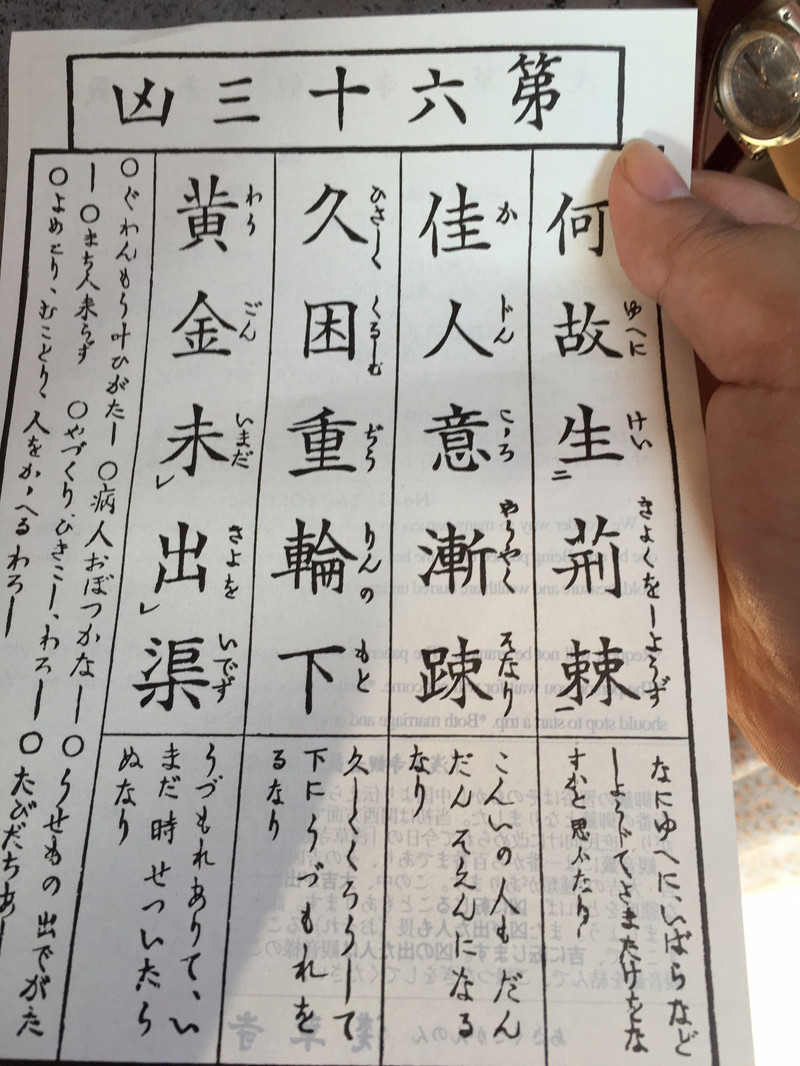 第六十三凶
何故生荊棘
ゆへに けい きよくをしようず
なにゆへに、いばらなど
しようじてさまたげをな
すかと思ふたなり
佳人意漸踈
か じん こゝろ やうやく そなり
こんいの人も だん
だん そえんになる
なり
久困重輪下
ひさしく くるしむ ぢう りんの もと
久しくくろうして
下にうづもれを
るなり
黄金未出渠
わう ごん いまだ きよを いでず
うづもれありて、い
まだ時せついたら
ぬなり
○ぐわんもう叶ひがたし ○病人おぼつかなし ○うせもの 出でがた
し ○まち人来らず ○やづくり、ひきこし、わろし ○たびだちあし
○よめとり、むことり、人をかゝへるわろし